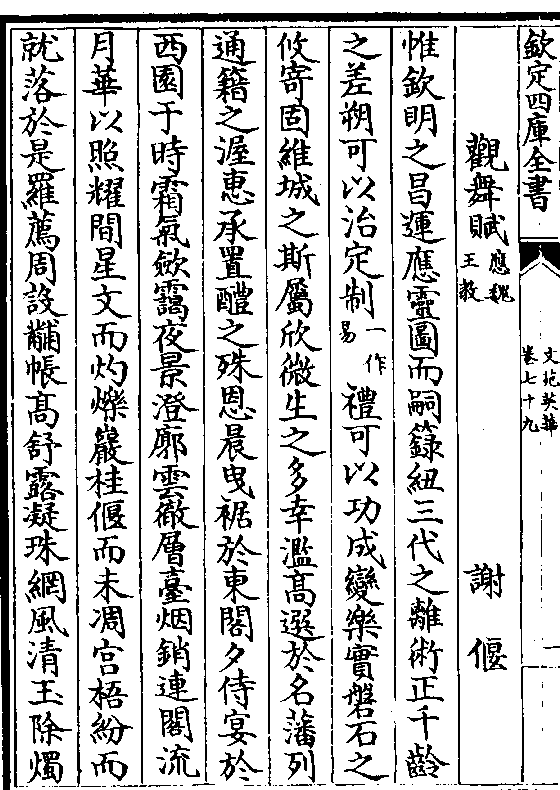 欽定四庫全書
文苑英華
卷七十九
觀舞賦應魏王教 謝偃
惟欽明之昌運應靈圖而嗣籙紐三代之離術正千齡
之差朔可以治定制一作易禮可以功成變樂實盤石之
攸寄固維城之斯屬欣微生之多幸濫高選於名藩列
通籍之渥惠承置醴之殊恩晨曳裾於東閣夕侍宴於
西園于時霜氣歛靄夜景澄廓雲徹層臺烟銷連閣流
月華以照耀間星文而灼爍巖桂偃而未凋宫梧紛而
就落於是羅薦周設黼帳高舒露凝珠網風清玉除燭